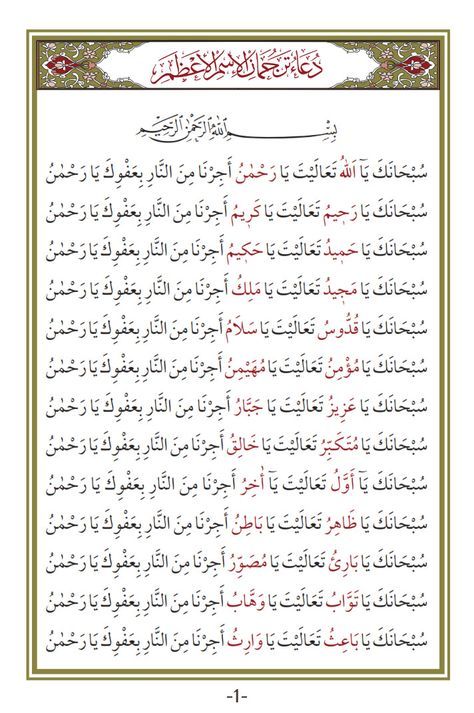 دُعَاءُ تَرْجُمَانِ الْاِسْمِ الْاَعْظَمِ
بِسْمِ اللهِ الرَّحْمٰنِ الرَّحِيمِ
سُبْحَانَكَ يَآ اَللهُ تَعَالَيْتَ يَا رَحْمٰنُ أَجِرْنَا مِنَ النَّارِ بِعَفْوِكَ يَا رَحْمٰنُ
سُبْحَانَكَ يَا رَحِيمُ تَعَالَيْتَ يَا كَرِيمُ أَجِرْنَا مِنَ النَّارِ بِعَفْوِكَ يَا رَحْمٰنُ
سُبْحَانَكَ يَا حَمِيدُ تَعَالَيْتَ يَا حَكِيمُ أَجِرْنَا مِنَ النَّارِ بِعَفْوِكَ يَا رَحْمٰنُ
سُبْحَانَكَ يَا مَجِيدُ تَعَالَيْتَ يَا مَلِكُ أَجِرْنَا مِنَ النَّارِ بِعَفْوِكَ يَا رَحْمٰنُ
سُبْحَانَكَ يَا قُدُّوسُ تَعَالَيْتَ يَا سَلَامُ أَجِرْنَا مِنَ النَّارِ بِعَفْوِكَ يَا رَحْمٰنُ
سُبْحَانَكَ يَا مُؤْمِنُ تَعَالَيْتَ يَا مُهَيْمِنُ أَجِرْنَا مِنَ النَّارِ بِعَفْوِكَ يَا رَحْمٰنُ
سُبْحَانَكَ يَا عَزِيزُ تَعَالَيْتَ يَا جَبَّارُ أَجِرْنَا مِنَ النَّارِ بِعَفْوِكَ يَا رَحْمٰنُ
سُبْحَانَكَ يَا مُتَكَبِّرُ تَعَالَيْتَ يَا خَالِقُ أَجِرْنَا مِنَ النَّارِ بِعَفْوِكَ يَا رَحْمٰنُ
سُبْحَانَكَ يَآ أَوَّلُ تَعَالَيْتَ يَآ أٰخِرُ أَجِرْنَا مِنَ النَّارِ بِعَفْوِكَ يَا رَحْمٰنُ
سُبْحَانَكَ يَا ظَاهِرُ تَعَالَيْتَ يَا بَاطِنُ أَجِرْنَا مِنَ النَّارِ بِعَفْوِكَ يَا رَحْمٰنُ
سُبْحَانَكَ يَا بَارِئُ تَعَالَيْتَ يَا مُصَوِّرُ أَجِرْنَا مِنَ النَّارِ بِعَفْوِكَ يَا رَحْمٰنُ
سُبْحَانَكَ يَا تَوَّابُ تَعَالَيْتَ يَا وَهَّابُ أَجِرْنَا مِنَ النَّارِ بِعَفْوِكَ يَا رَحْمٰنُ
سُبْحَانَكَ يَا بَاعِثُ تَعَالَيْتَ يَا وَارِثُ أَجِرْنَا مِنَ النَّارِ بِعَفْوِكَ يَا رَحْمٰنُ
-1-